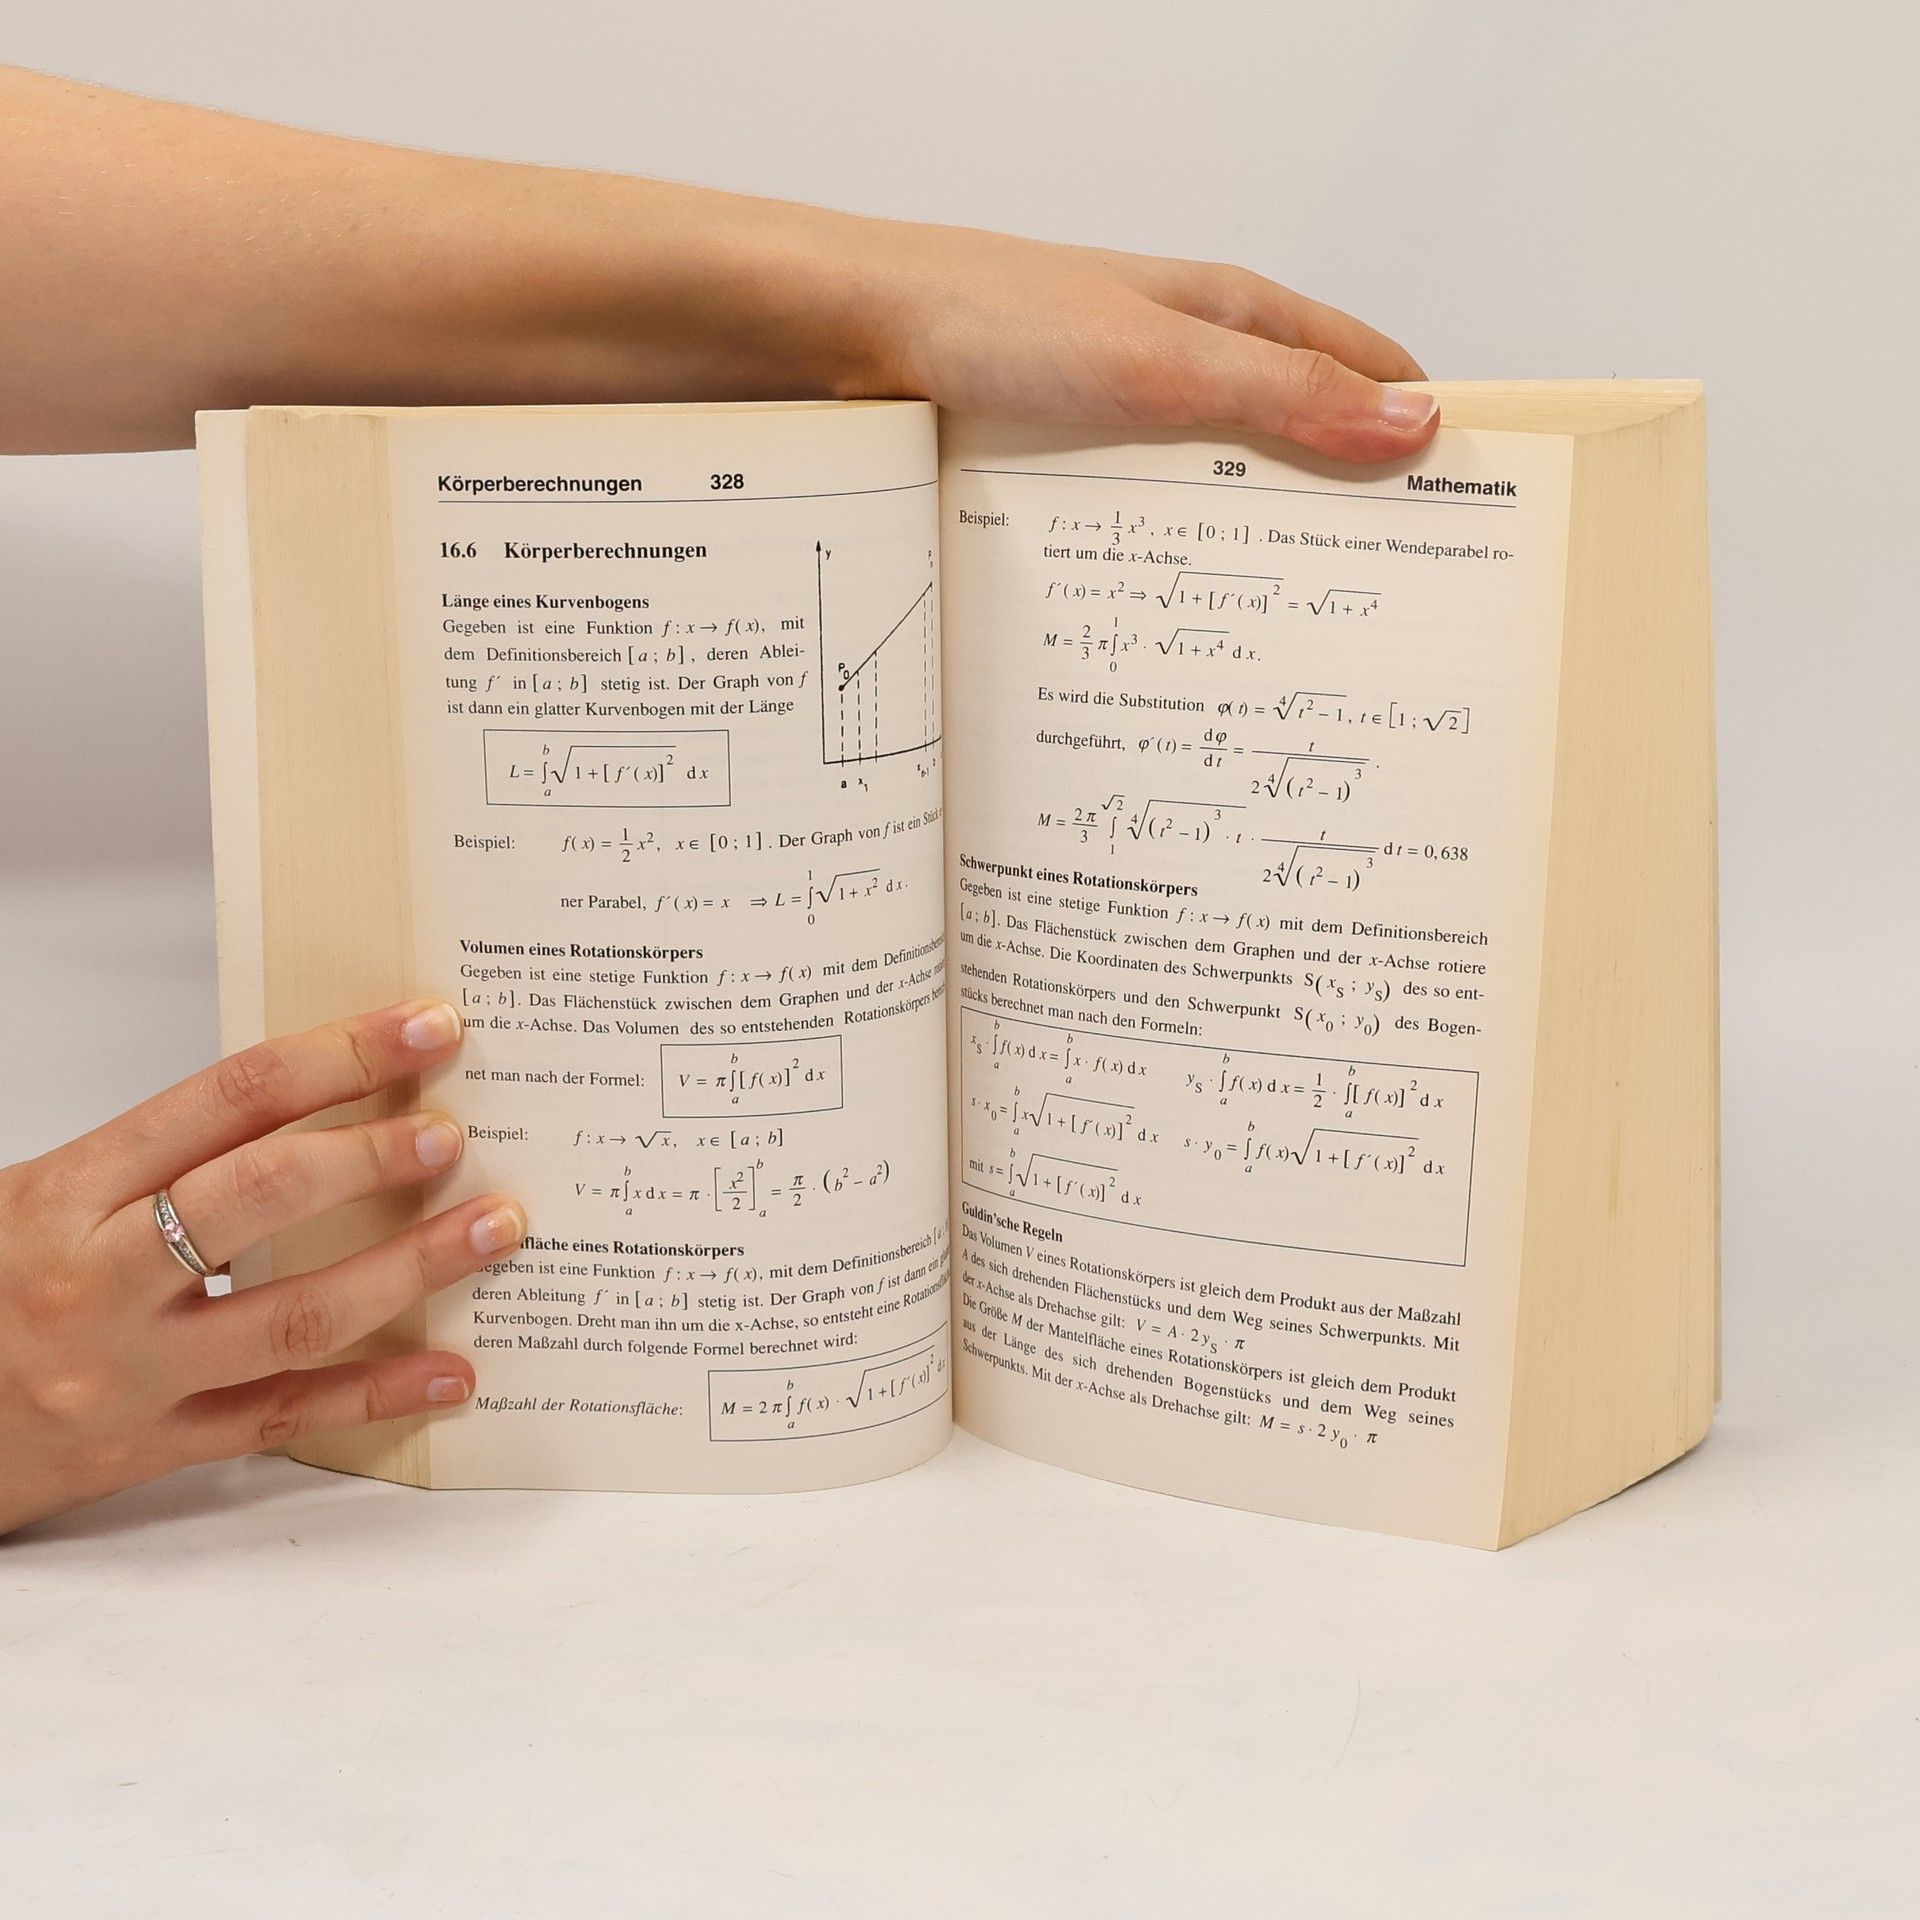 Körperberechnungen 328
16.6 Körperberechnungen
Länge eines Kurvenbogens
Gegeben ist eine Funktion f : x → f(x), mit
dem Definitionsbereich [a ; b], deren Ablei-
tung f´ in [a ; b] stetig ist. Der Graph von f
ist dann ein glatter Kurvenbogen mit der Länge
L = ∫_a^b √(1 + [f´(x)]²) dx
y
P₀
a x₁
Beispiel: f(x) = 1/2 x², x ∈ [0 ; 1]. Der Graph von f ist ein Stück
ner Parabel, f´(x) = x ⇒ L = ∫_0^1 √(1 + x²) dx.
Volumen eines Rotationskörpers
Gegeben ist eine stetige Funktion f : x → f(x) mit dem
[a ; b]. Das Flächenstück zwischen dem Graphen und der x-Achse
um die x-Achse. Das Volumen des so entstehenden Rotationskörpers
net man nach der Formel: V = π ∫_a^b [f(x)]² dx
Beispiel: f : x → √x, x ∈ [a ; b]
V = π ∫_a^b x dx = π · [x²/2]_a^b = π/2 · (b² − a²)
fläche eines Rotationskörpers
Gegeben ist eine Funktion f : x → f(x), mit dem Definitionsbereich [a ;
deren Ableitung f´ in [a ; b] stetig ist. Der Graph von f ist dann ein
Kurvenbogen. Dreht man ihn um die x-Achse, so entsteht eine
deren Maßzahl durch folgende Formel berechnet wird:
Maßzahl der Rotationsfläche: M = 2 π ∫_a^b f(x) · √(1 + [f´(x)]²) dx
329 Mathematik
Beispiel: f : x → 1/3 x³, x ∈ [0 ; 1]. Das Stück einer Wendeparabel ro-
tiert um die x-Achse.
f´(x) = x² ⇒ √(1 + [f´(x)]²) = √(1 + x⁴)
M = 2/3 π ∫_0^1 x³ · √(1 + x⁴) dx.
Es wird die Substitution φ(t) = ⁴√(t² − 1), t ∈ [1 ; √2]
durchgeführt, φ´(t) = dφ/dt = t / (2 ⁴√((t² − 1)³)).
M = 2π/3 ∫_1^√2 ⁴√((t² − 1)³) · t · t / (2 ⁴√((t² − 1)³)) dt = 0,638
Schwerpunkt eines Rotationskörpers
Gegeben ist eine stetige Funktion f : x → f(x) mit dem Definitionsbereich
[a ; b]. Das Flächenstück zwischen dem Graphen und der x-Achse rotiere
um die x-Achse. Die Koordinaten des Schwerpunkts S(x_S ; y_S) des so ent-
stehenden Rotationskörpers und den Schwerpunkt S(x₀ ; y₀) des Bogen-
stücks berechnet man nach den Formeln:
x_S · ∫_a^b f(x) dx = ∫_a^b x · f(x) dx y_S · ∫_a^b f(x) dx = 1/2 · ∫_a^b [f(x)]² dx
s · x₀ = ∫_a^b x √(1 + [f´(x)]²) dx s · y₀ = ∫_a^b f(x) √(1 + [f´(x)]²) dx
mit s = ∫_a^b √(1 + [f´(x)]²) dx
Guldin'sche Regeln
Das Volumen V eines Rotationskörpers ist gleich dem Produkt aus der Maßzahl
A des sich drehenden Flächenstücks und dem Weg seines Schwerpunkts. Mit
der x-Achse als Drehachse gilt: V = A · 2 y_S · π
Die Größe M der Mantelfläche eines Rotationskörpers ist gleich dem Produkt
aus der Länge des sich drehenden Bogenstücks und dem Weg seines
Schwerpunkts. Mit der x-Achse als Drehachse gilt: M = s · 2 y₀ · π